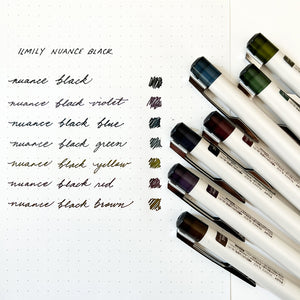 ILMILY NUANCE BLACK
nuance black
nuance black violet
nuance black blue
nuance black green
nuance black yellow
nuance black red
nuance black brown